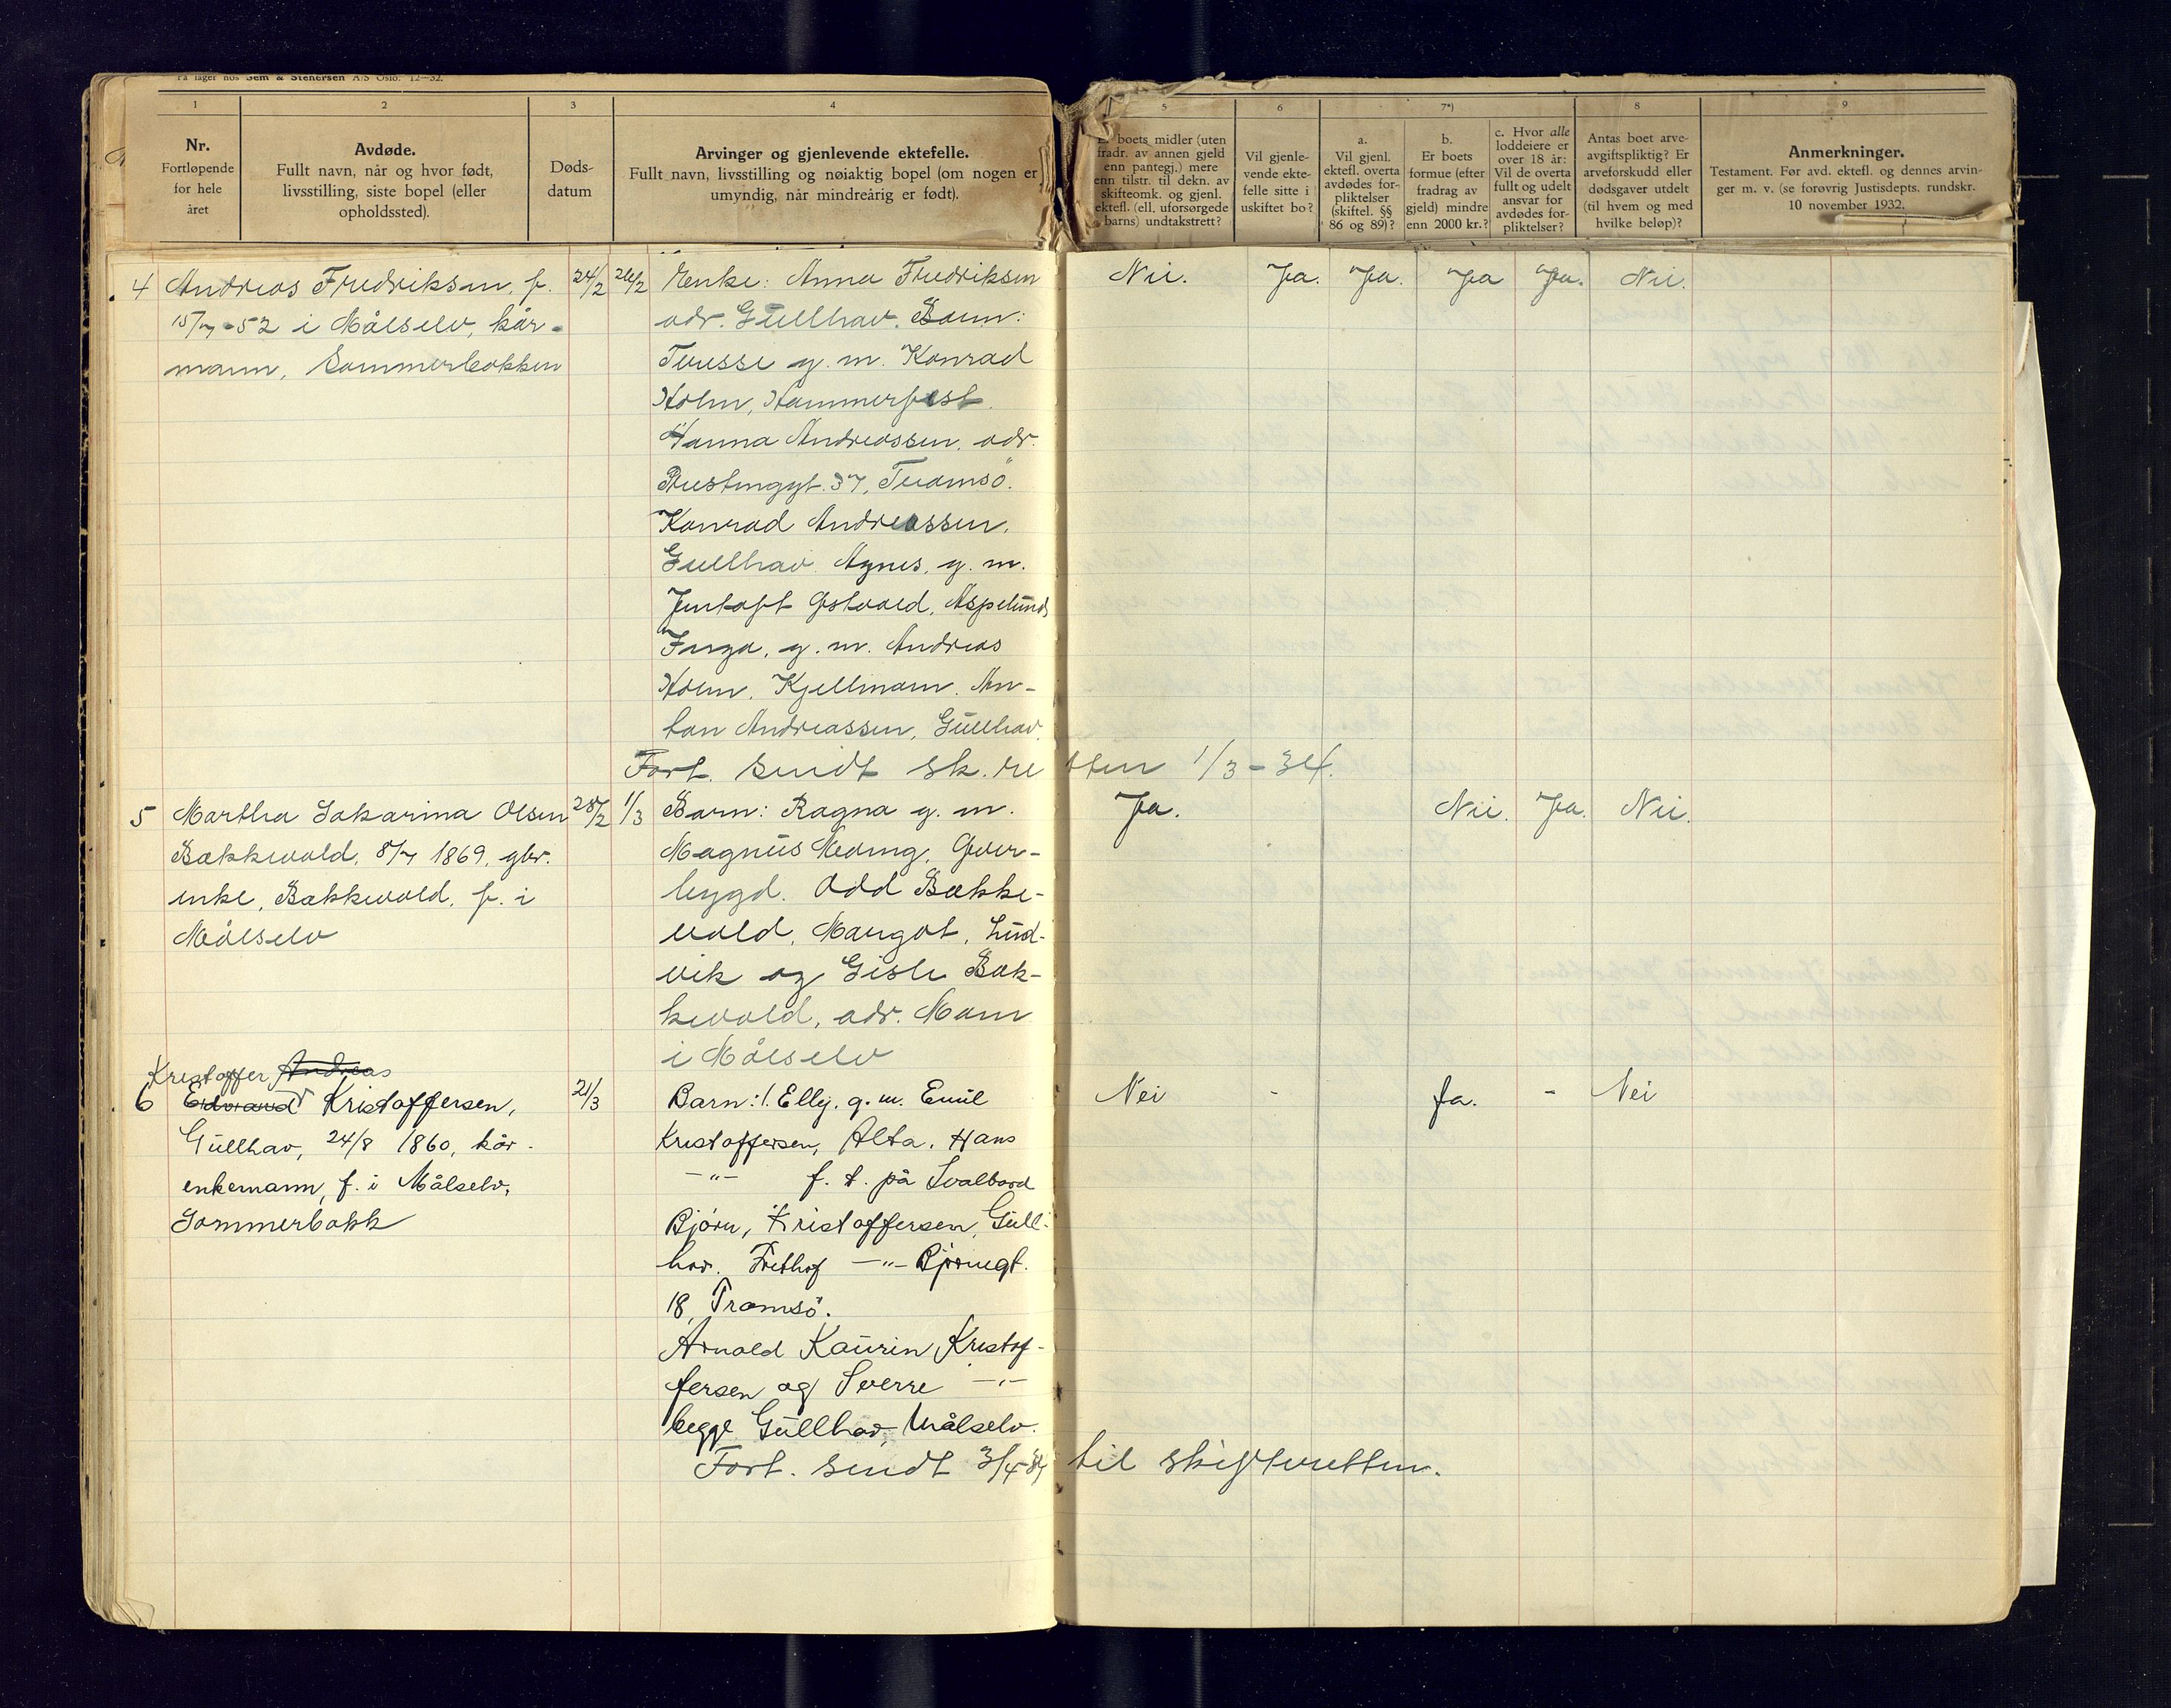 På lager hos Sem & Stenersen A/S Oslo. 12—32.
1
2
3
4
5
6
7*)
8
9
Nr.
Fortløpende
for hele
året
Avdøde.
Fullt navn, når og hvor født,
livsstilling, siste bopel (eller
opholdssted).
Døds-
datum
Arvinger og gjenlevende ektefelle.
Fullt navn, livsstilling og nøiaktig bopel (om nogen er
umyndig, når mindreårig er født).
Er boets midler (uten
fradr. av annen gjeld
enn pantegj.) mere
enn tilstr. til dekn. av
skifteomk. og gjenl.
ektefl. (ell. uforsørgede
barns) undtakstrett?
Vil gjenle-
vende ekte-
felle sitte i
uskiftet bo?
a.
Vil gjenl.
ektefl. overta
avdødes for-
pliktelser
(skiftel. §§
86 og 89)?
b.
Er boets
formue (efter
fradrag av
gjeld) mindre
enn 2000 kr.?
c. Hvor alle
loddeiere er
over 18 år:
Vil de overta
fullt og udelt
ansvar for
avdødes for-
pliktelser?
Antas boet arve-
avgiftspliktig? Er
arveforskudd eller
dødsgaver utdelt
(til hvem og med
hvilke beløp)?
Anmerkninger.
Testament. Før avd. ektefl. og dennes arvin-
ger m. v. (se forøvrig Justisdepts. rundskr.
10 november 1932.
4 Andreas Fredriksen, f.
15/7-52 i Målselv, kår-
mann, Sommerbakken
24/2 26/2
Enke: Anna Fredriksen
adr. Gullhav. Barn:
Terese g. m. Konrad
Holm, Hammerfest.
Hanna Andreassen, adr.
37, Tromsö.
Konrad Andreassen,
Gullhav. Agnes, g. m.
Jentoft Østvold, Aspelund,
Inga, g. m. Andreas
Holm, Kjellmam. An-
ton Andreassen, Gullhav.
Nei. Ja. Ja. Ja Ja. Nei.
Fort. sendt sk.retten 1/3-34.
5 Martha Sakarina Olsen
Bakkevold, 8/7 1869, gbr.
enke, Bakkevold, f. i
Målselv
28/2 1/3
Barn: Ragna g. m.
Magnus Moving, Øver-
bygd. Odd Bakke-
vold, Margot, Lud-
vik og Gisle Bak-
kevold, adr. Moen
i Målselv
Ja. Nei. Ja. Nei.
Kristoffer Andreas
6 Edvard Kristoffersen,
Gullhav, 24/8 1860, kår-
enkemann, f. i Målselv,
Sommerbakk
21/3
Barn: 1. Elly, g. m. Emil
Kristoffersen, Alta. Hans
—"— f. t. på Svalbard
Bjørn, Kristoffersen, Gull-
hav. Frithof —"— Bjørnegt.
18, Tromsö.
Arnold Kaurin Kristof-
fersen og Sverre —"—
begge Gullhav, Målselv.
Nei - Ja. - Nei
Fort. sendt 3/4-34 til skifteretten.